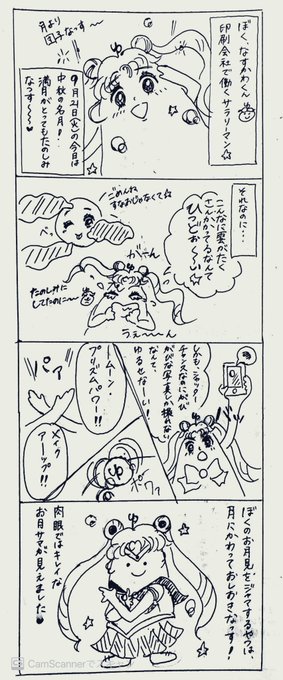 ぼく、なすかわくん
印刷会社で働く
サラリーマン☆
月より
団子なっす〜
9月21日(火)の今日は
中秋の名月!
満月がとってもたのしみ
なっす〜〜
それなのに…
こんなに雲がたく
さんかかってるなんて
ひっどぉ〜い
ごめんね
すなおじゃなくて☆
ペッ
がーん
たのしみに
してたのに〜
うぇ〜〜ん
しかも、シャッター
チャンスなのにがび
がびな写真しか撮れない
なんて、
ゆるせなーい!
ムーン・
プリズムパワー!!
メイク
アーップ!!
パァ
ポワァ
ぼくのお月見をジャマするやつは、
月にかわっておしおきなっす!
肉眼ではキレイな
お月サマが見えました
CS CamScannerで